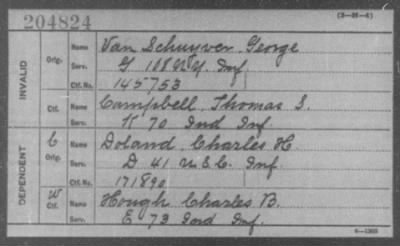 204824
(3-M-4)
INVALID
Orig. Name Van Schuyver, George
Serv. G 108 N.Y. Inf
Ctf. No. 145753
Ctf. Name Campbell, Thomas S.
Serv. K 70 Ind Inf.
DEPENDENT
C Orig. Name Doland, Charles H.
Serv. D 41 U.S.C. Inf.
Ctf. No. 171890
W Ctf. Name Hough Charles B.
Serv. E 73 Ind Inf.
6-1303